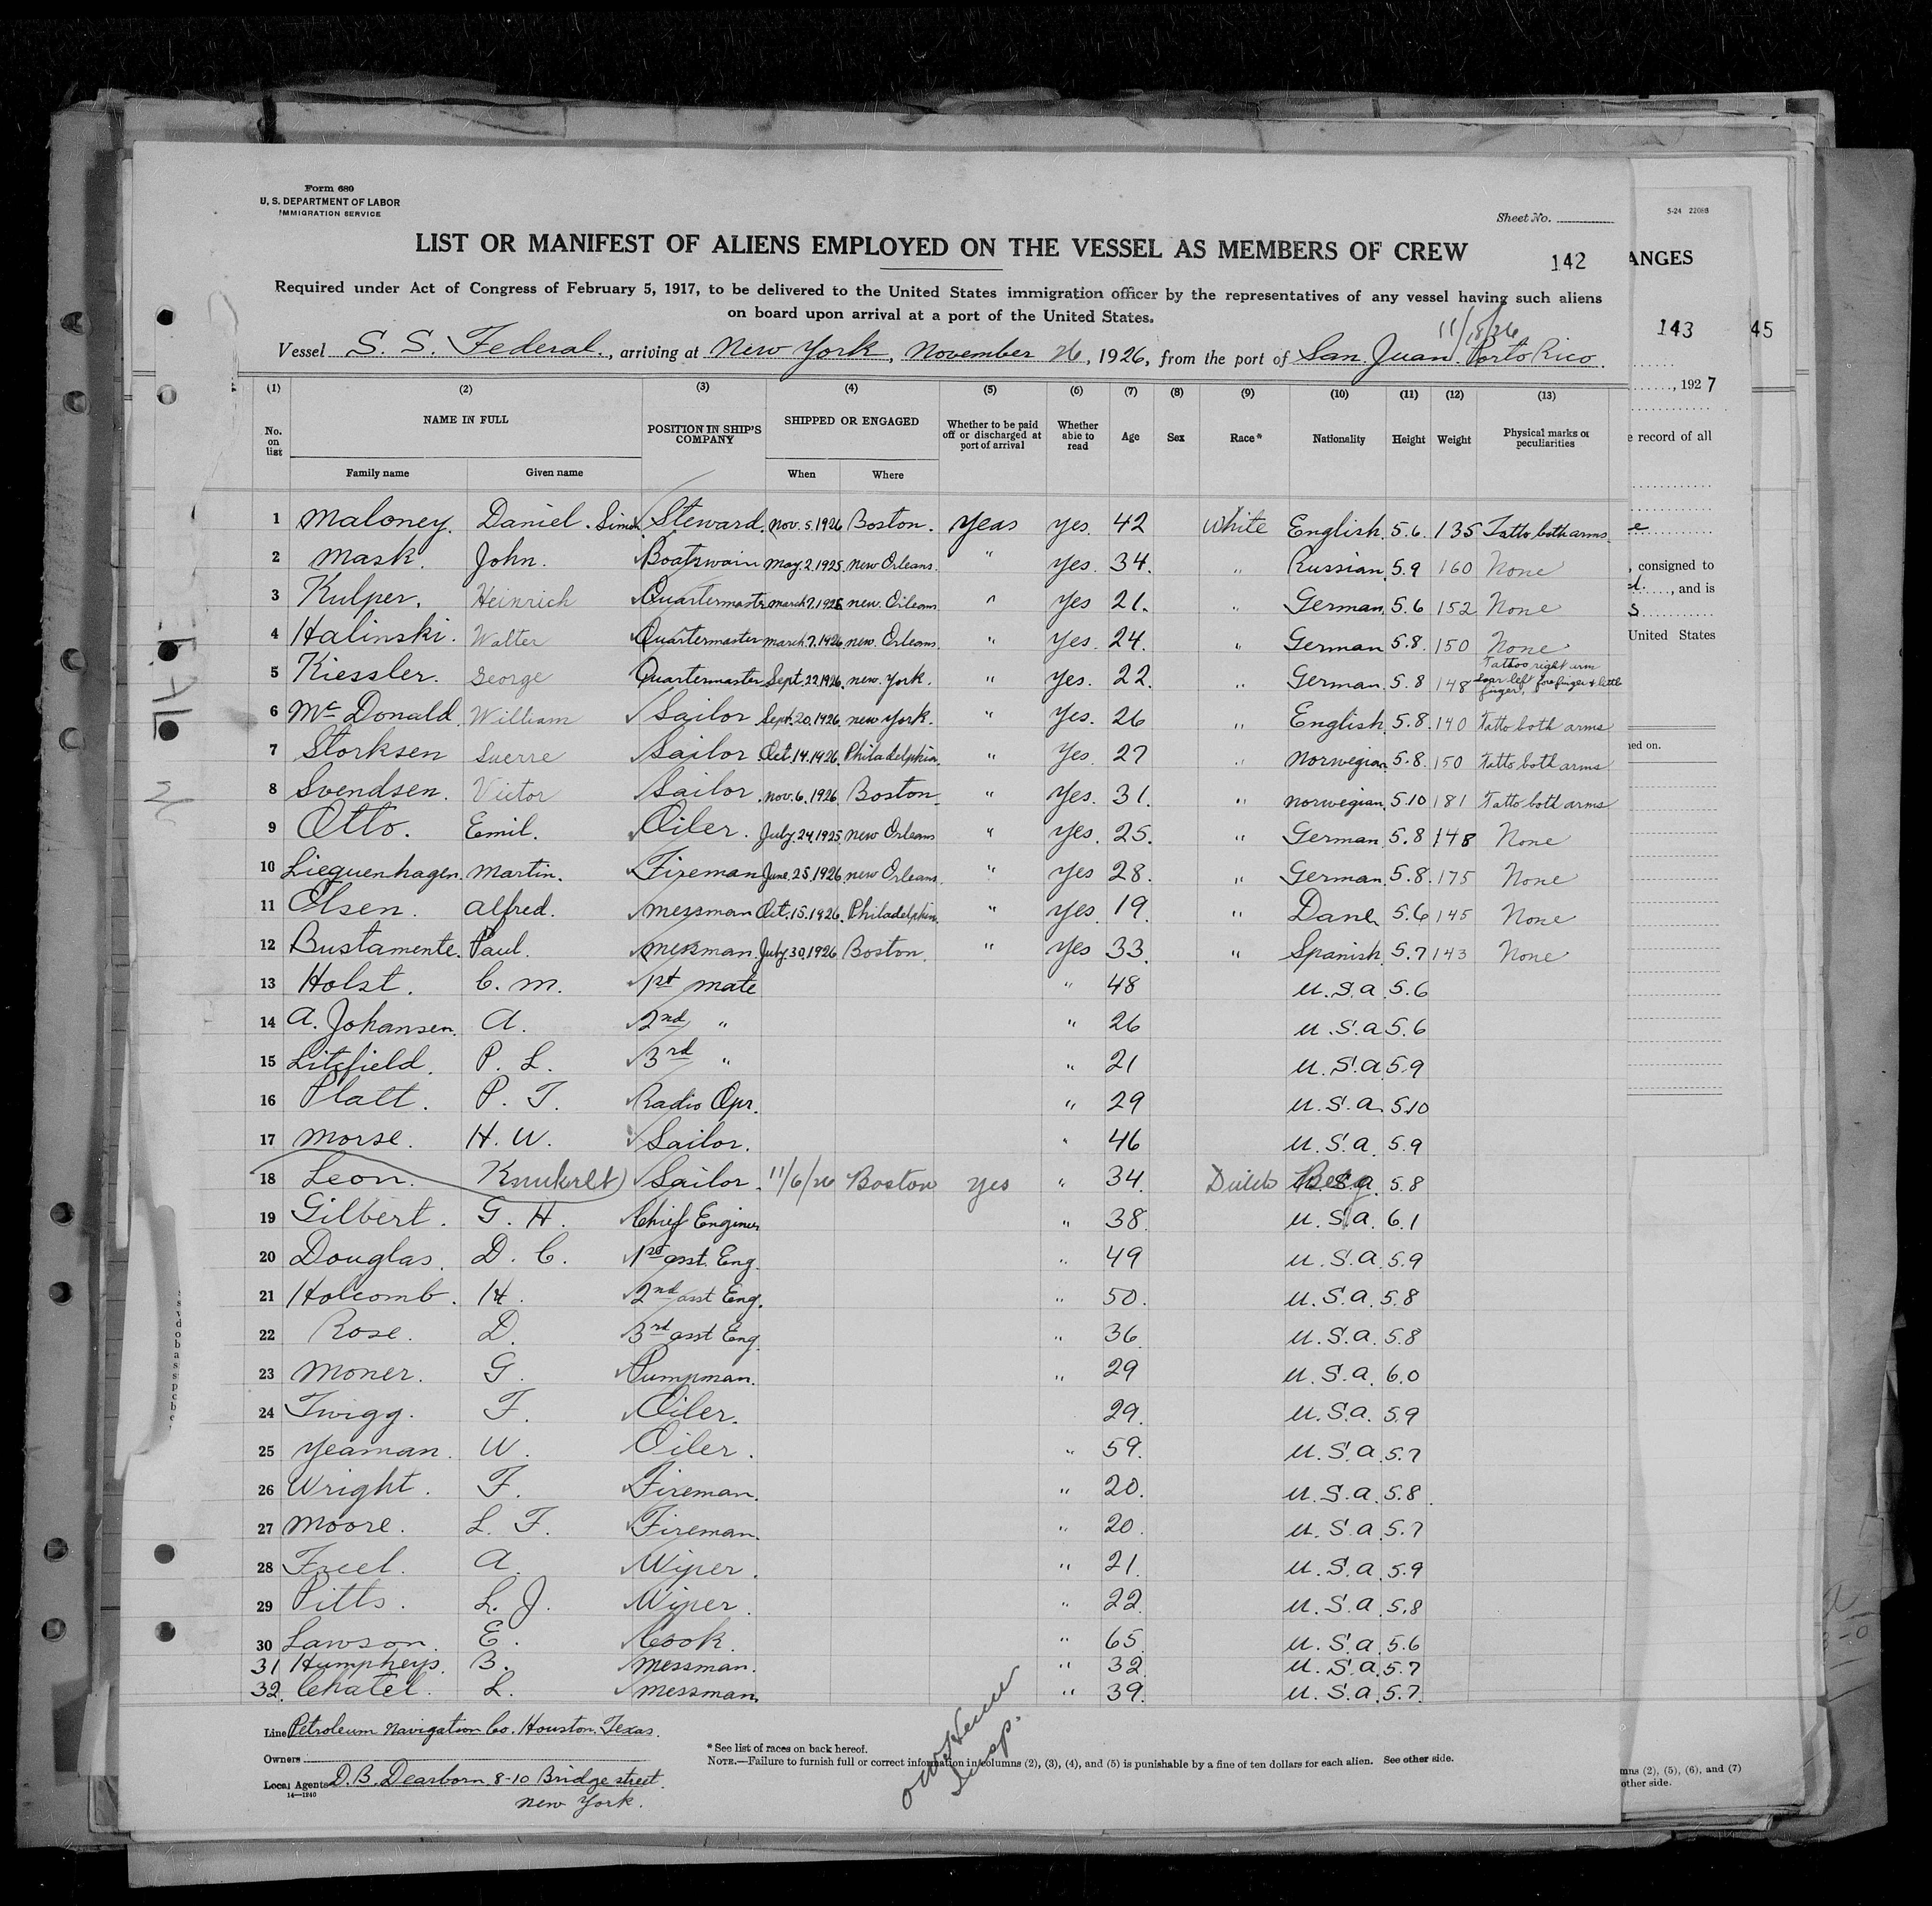 Form 680
U. S. DEPARTMENT OF LABOR
IMMIGRATION SERVICE
Sheet No.
5-24 22088
LIST OR MANIFEST OF ALIENS EMPLOYED ON THE VESSEL AS MEMBERS OF CREW
142
ANGES
Required under Act of Congress of February 5, 1917, to be delivered to the United States immigration officer by the representatives of any vessel having such aliens
on board upon arrival at a port of the United States.
11/18/26
143
45
Vessel S. S. Federal., arriving at New York, November 26, 1926, from the port of San Juan Porto Rico.
, 1927
(1) (2) (3) (4) (5) (6) (7) (8) (9) (10) (11) (12) (13)
No. on list
NAME IN FULL
Family name Given name
POSITION IN SHIP'S COMPANY
SHIPPED OR ENGAGED
When Where
Whether to be paid off or discharged at port of arrival
Whether able to read
Age Sex Race* Nationality Height Weight
Physical marks or peculiarities
e record of all
1 Maloney. Daniel. Simon Steward. Nov. 5. 1926 Boston. Yeas yes. 42 White English. 5.6. 135 Tatto both arms.
2 Mask. John. Boatswain May. 2. 1925. New Orleans. " Yes. 34. " Russian. 5.9 160 None
, consigned to
3 Kulper. Heinrich Quartermaster March 7. 1926 New. Orleans " Yes 21. " German. 5.6 152 None
, and is
4 Halinski. Walter Quartermaster March. 7. 1926. New. Orleans. " Yes. 24. " German 5.8. 150 None
United States
5 Kiessler. George Quartermaster Sept. 22. 1926. New. York. " Yes. 22. " German. 5.8 148 Tattoo right arm
Scar left forefinger & little
finger.
6 Mc Donald. William Sailor Sept. 20. 1926. New York. " Yes. 26 " English. 5.8. 140 Tatto both arms
7 Storksen Sverre Sailor Oct. 14. 1926. Philadelphia. " Yes. 27 " Norwegian. 5.8. 150 Tatto both arms
ned on.
8 Svendsen. Victor Sailor. Nov. 6. 1926. Boston. " Yes. 31. " Norwegian. 5.10 181 Tatto both arms
9 Otto. Emil. Oiler. July. 24. 1925. New Orleans " Yes. 25. " German. 5.8 148 None
10 Lieguenhagen. Martin. Fireman June. 25. 1926. New Orleans. " Yes 28. " German. 5.8. 175 None
11 Olsen. Alfred. Messman Oct. 15. 1926. Philadelphia. " Yes. 19. " Dane 5.6 145 None
12 Bustamente. Paul. Messman. July. 30. 1926 Boston. " Yes 33. " Spanish. 5.7 143 None
13 Holst. C. M. 1st Mate " 48 U. S. A. 5.6
14 A. Johansen. A. 2nd " " 26 U. S. A 5.6
15 Litchfield. P. L. 3rd " " 21 U. S. A 5.9
16 Platt. P. T. Radio Opr. " 29 U. S. A. 5.10
17 Morse. H. W. Sailor. " 46 U. S. A. 5.9
18 Leon. Sailor. 11/6/26 Boston Yes " 34. Dutch Belg. 5.8
19 Gilbert. G. H. Chief Engineer " 38. U. S. A. 6.1
20 Douglas. D. C. 1st Asst. Eng. " 49 U. S. A. 5.9
21 Holcomb. H. 2nd Asst Eng. " 50. U. S. A. 5.8
22 Rose. D. 3rd Asst Eng. " 36 U. S. A. 5.8
23 Moner. G. Pumpman. " 29 U. S. A. 6.0
24 Twigg. F. Oiler. 29. U. S. A. 5.9
25 Yeaman. W. Oiler. " 59. U. S. A. 5.7
26 Wright. F. Fireman. " 20. U. S. A. 5.8.
27 Moore. L. F. Fireman. " 20. U. S. A. 5.7
28 Freel. A. Wiper. " 21. U. S. A. 5.9
29 Pitts. L. J. Wiper. " 22. U. S. A. 5.8
30 Lawson. E. Cook. " 65. U. S. A. 5.6
31 Humpheys. B. Messman. " 32. U. S. A. 5.7
32. Chatel. L. Messman. " 39. U. S. A. 5.7.
Line Petroleum Navigation Co. Houston. Texas.
Owners
Local Agents D. B. Dearborn 8-10 Bridge street.
14—1240
New York.
* See list of races on back hereof.
NOTE.—Failure to furnish full or correct information in columns (2), (3), (4), and (5) is punishable by a fine of ten dollars for each alien. See other side.
Insp.
mns (2), (5), (6), and (7)
other side.